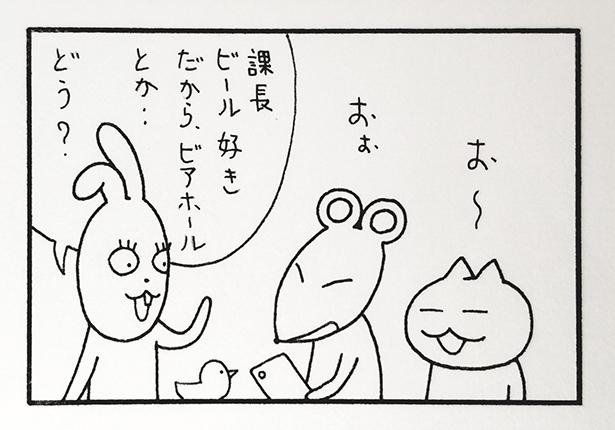 課長
ビール好き
だから、ビアホール
とか‥
どう？
おぉ
お〜